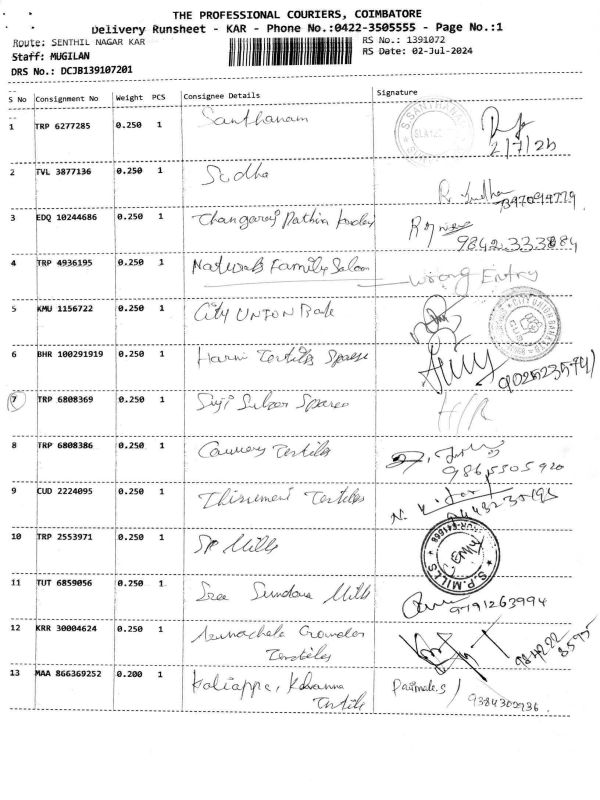 THE PROFESSIONAL COURIERS, COIMBATORE
Delivery Runsheet - KAR - Phone No.:0422-3505555 - Page No.:1
Route: SENTHIL NAGAR KAR
RS No.: 1391072
Staff: MUGILAN
RS Date: 02-Jul-2024
DRS No.: DCJB139107201
S No Consignment No Weight PCS Consignee Details Signature
1 TRP 6277285 0.250 1 Santhanam
2/7/2
2 TVL 3877136 0.250 1 Sudha R. Sudha
3 EDQ 10244686 0.250 1
9842333884
4 TRP 4936195 0.250 1 Naturals Family Saloon Wrong Entry
5 KMU 1156722 0.250 1 City UNION Bank
6 BHR 100291919 0.250 1 Harni Textiles
7 TRP 6808369 0.250 1 Spares H/R
8 TRP 6808386 0.250 1 Textiles
9865505920
9 CUD 2224095 0.250 1 Textiles
10 TRP 2553971 0.250 1 SP Mills
S.P.MILLS
11 TUT 6859056 0.250 1 Sree Sundara Mills
9791263994
12 KRR 30004624 0.250 1 Arunachala Gounder
Textiles
13 MAA 866369252 0.200 1 Kaliappa, Textile
Parimala.S
9384300936.